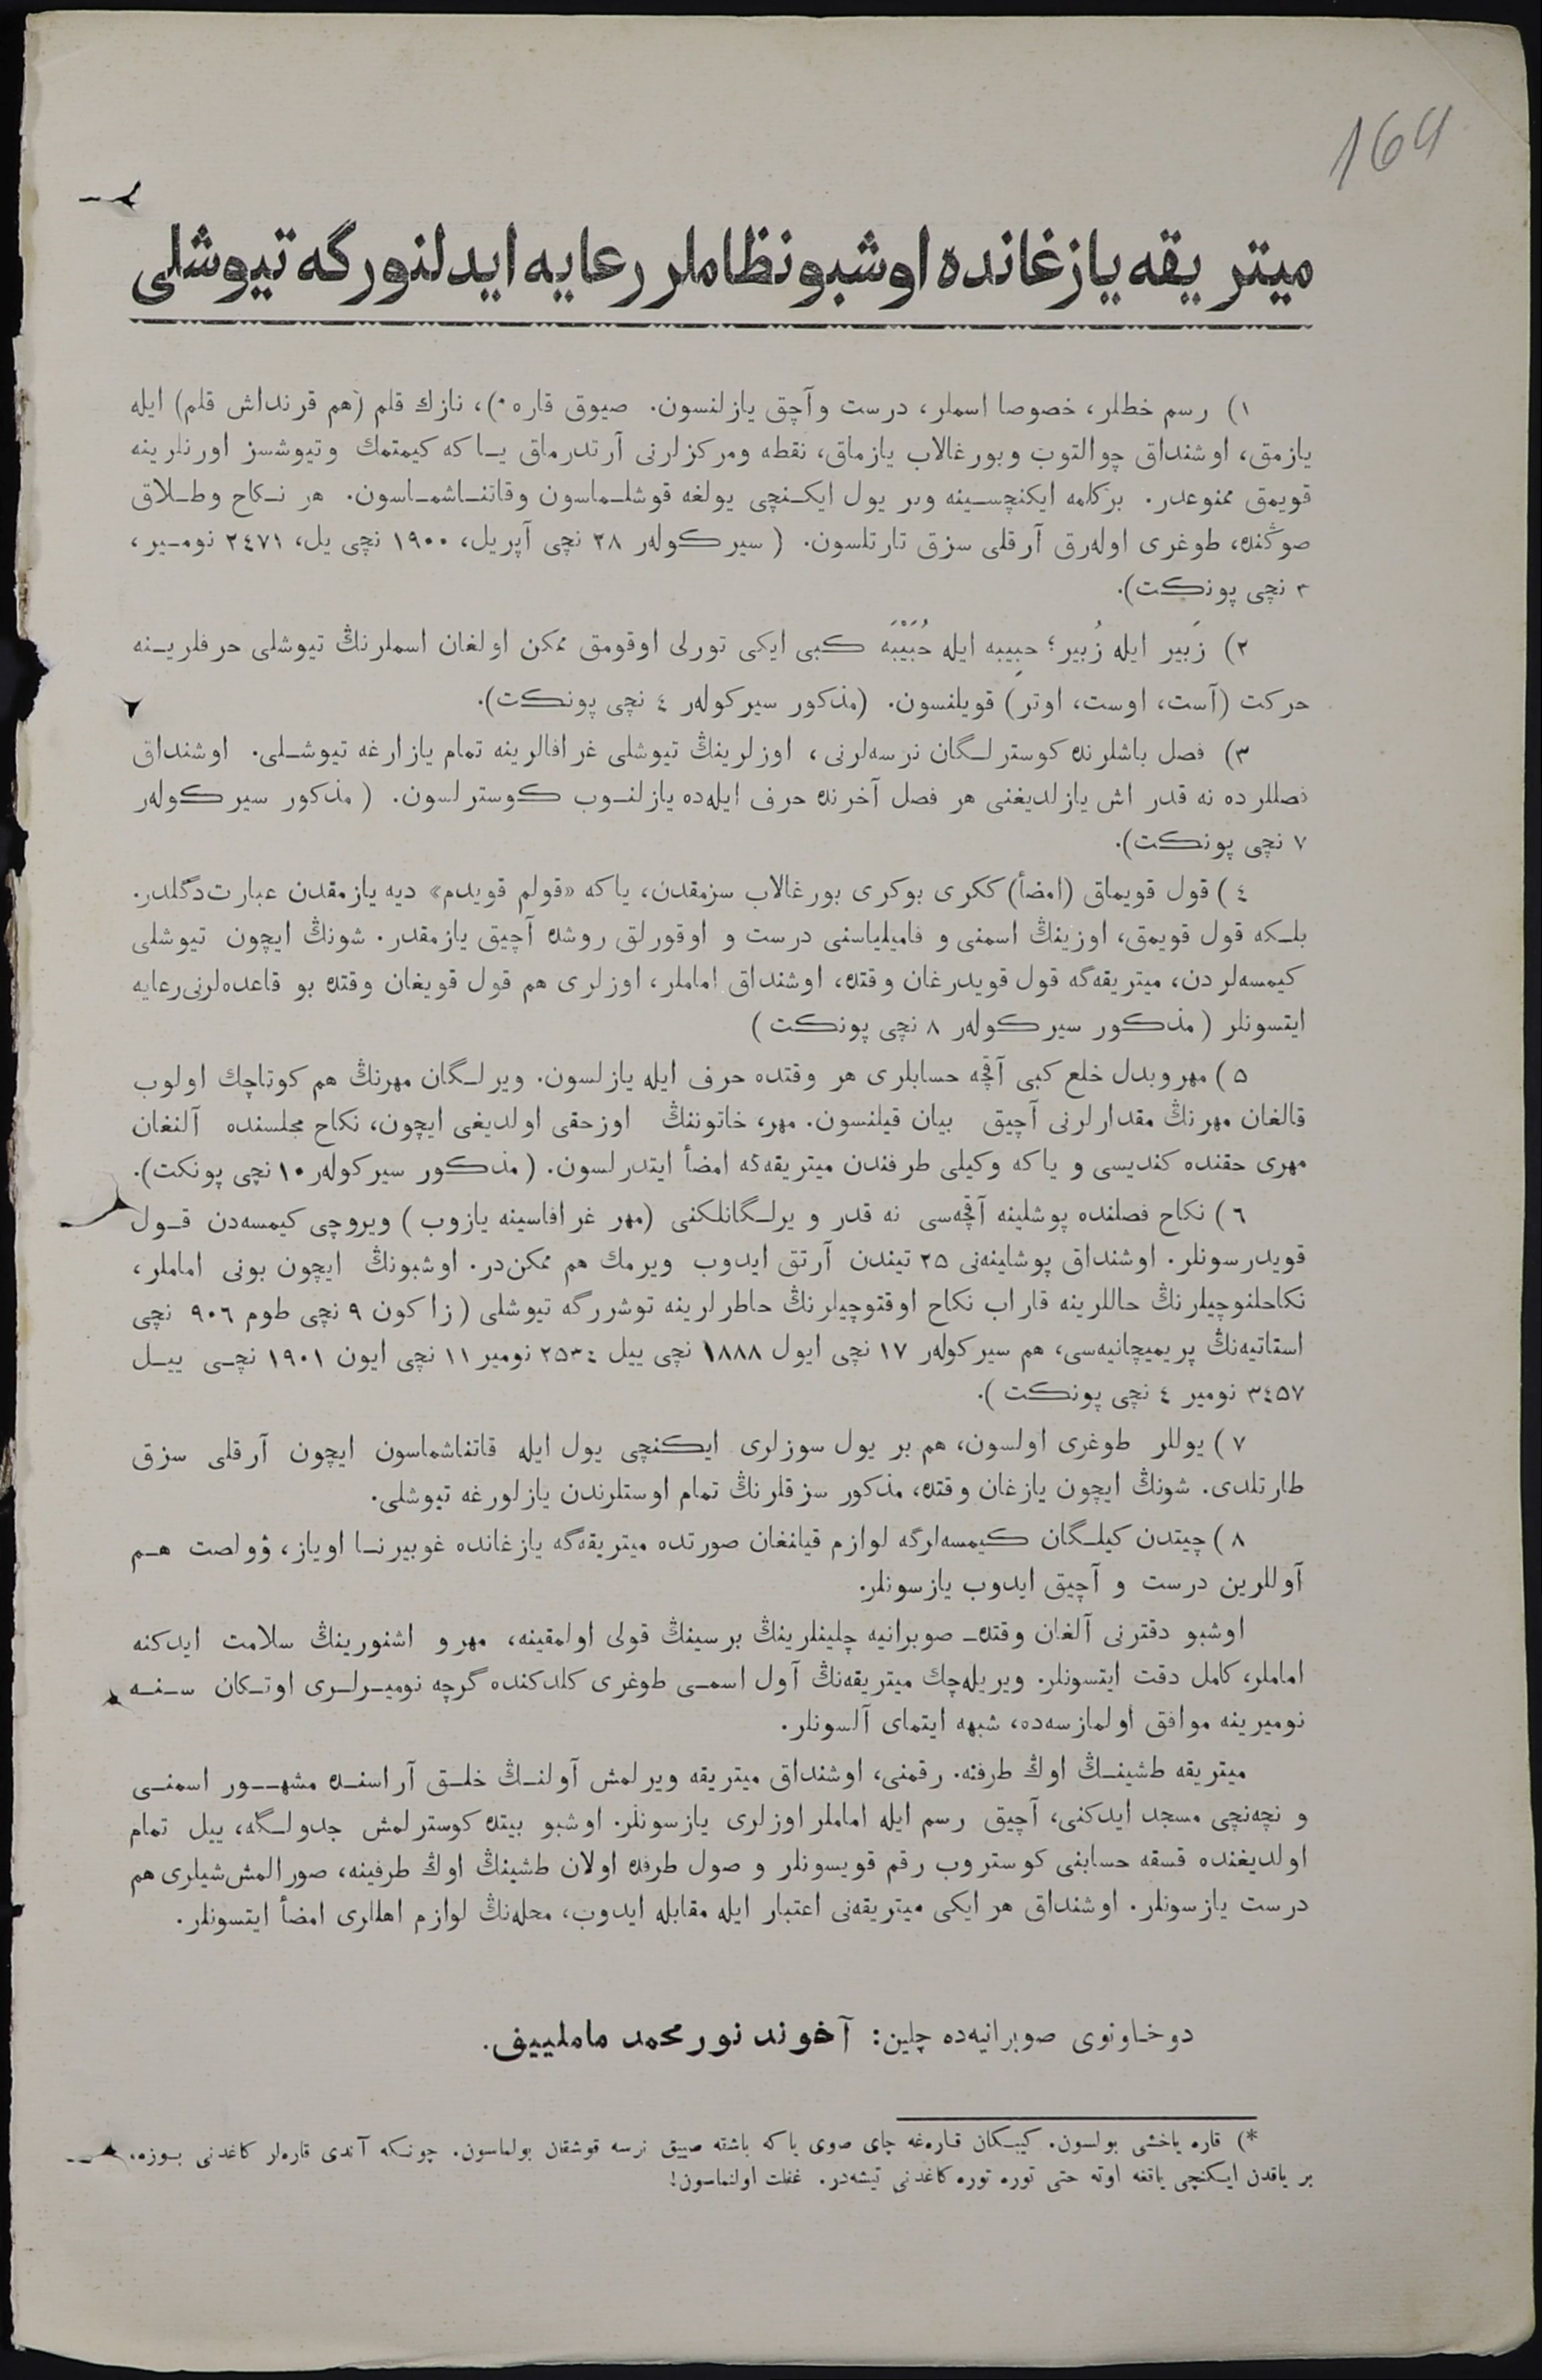 164
میتریقه یازغانده اوشبو نظاملر رعایه ایدلنورگه تیوشلی
١) رسم خطلر، خصوصا اسملر، درست وآچق یازلنسون. صیوق قاره *)، نازك قلم (هم قرنداش قلم) ایله
یازمق، اوشنداق چوالتوب وبورغالاب یازماق، نقطه ومركزلرنی آرتدرماق یـا كه كیمتمك وتیوشسز اورنلرینه
قویمق ممنوعدر. بركلمه ایكنچسـینه وبر یول ایكـنچی یولغه قوشلـماسون وقاتنـاشمـاسون. هر نـكاح وطـلاق
صوڭنده، طوغری اوله‌رق آرقلی سزق تارتلسون. (سیركوله‌ر ٢٨ نچی آپریل، ١٩٠٠ نچی یل، ٢٤٧١ نومـیر،
٣ نچی پونكت).
٢) زَبیر ایله زُبیر؛ حبِیبه ایله حُبَیْبَه كبی ایكی تورلی اوقومق ممكن اولغان اسملرنڭ تیوشلی حرفلریـنه
حركت (آست، اوست، اوتر) قویلنسون. (مذكور سیركوله‌ر ٤ نچی پونكت).
٣) فصل باشلرنده كوسترلـگان نرسه‌لرنی، اوزلرینڭ تیوشلی غرافالرینه تمام یازارغه تیوشـلی. اوشنداق
فصللرده نه قدر اش یازلدیغنی هر فصل آخرنده حرف ایله‌ده یازلنـوب كوسترلسون. (مذكور سیركوله‌ر
٧ نچی پونكت).
٤) قول قویماق (امضأ) ككری بوكری بورغالاب سزمقدن، یاكه «قولم قویدم» دیه یازمقدن عبارت دگلدر.
بلـكه قول قویمق، اوزینڭ اسمنی و فامیلیاسنی درست و اوقورلق روشده آچیق یازمقدر. شونڭ ایچون تیوشلی
كیمسه‌لردن، میتریقه‌گه قول قویدرغان وقتده، اوشنداق اماملر، اوزلری هم قول قویغان وقتده بو قاعده‌لرنی رعایه
ایتسونلر (مذكور سیركوله‌ر ٨ نچی پونكت)
٥) مهر وبدل خلع كبی آقچه حسابلری هر وقتده حرف ایله یازلسون. ویرلـگان مهرنڭ هم كوتاچك اولوب
قالغان مهرنڭ مقدارلرنی آچیق بیان قیلنسون. مهر، خاتوننڭ اوزحقی اولدیغی ایچون، نكاح مجلسنده آلنغان
مهری حقنده كندیسی و یاكه وكیلی طرفندن میتریقه‌گه امضأ ایتدرلسون. (مذكور سیركوله‌ر ١٠ نچی پونكت).
٦) نكاح فصلنده پوشلینه آقچه‌سی نه قدر و یرلـگانلكنی (مهر غرافاسینه یازوب) ویروچی كیمسه‌دن قـول
قویدرسونلر. اوشنداق پوشلینه‌نی ٢٥ تیندن آرتق ایدوب ویرمك هم ممكن‌در. اوشبونڭ ایچون بونی اماملر،
نكاحلنوچیلرنڭ حاللرینه قاراب نكاح اوقتوچیلرنڭ خاطرلرینه توشررگه تیوشلی (زاكون ٩ نچی طوم ٩٠٦ نچی
استاتیه‌نڭ پریمیچانیه‌سی، هم سیركوله‌ر ١٧ نچی ایول ١٨٨٨ نچی ییل ٢٥٣٤ نومیر ١١ نچی ایون ١٩٠١ نچـی ییـل
٣٤٥٧ نومیر ٤ نچی پونكت).
٧) یوللر طوغری اولسون، هم بر یول سوزلری ایكنچی یول ایله قاتناشماسون ایچون آرقلی سزق
طارتلدی. شونڭ ایچون یازغان وقتده، مذكور سزقلرنڭ تمام اوستلرندن یازلورغه تیوشلی.
٨) چیتدن كیلـگان كیمسه‌لرگه لوازم قیلنغان صورتده میتریقه‌گه یازغانده غوبیرنـا اویاز، وولصت هـم
آوللرین درست و آچیق ایدوب یازسونلر.
اوشبو دفترنی آلغان وقتده صوبرانیه چلینلرینڭ برسینڭ قولی اولمقینه، مهر و اشنورینڭ سلامت ایدكنه
اماملر، كامل دقت ایتسونلر. ویریله‌چك میتریقه‌نڭ آول اسمـی طوغری كلدكنده گرچه نومیـرلـری اوتـكان سـنـه
نومیرینه موافق اولمازسه‌ده، شبهه ایتمای آلسونلر.
میتریقه طشینـڭ اوڭ طرفنه. رقمنی، اوشنداق میتریقه ویرلمش آولنـڭ خلـق آراسنـده مشهـور اسمنـی
و نچه‌نچی مسجد ایدكنی، آچیق رسم ایله اماملر اوزلری یازسونلر. اوشبو بیتده كوسترلمش جدولـگه، ییل تمام
اولدیغنده قسقه حسابنی كوستروب رقم قویسونلر و صول طرفده اولان طشینڭ اوڭ طرفینه، صورالمش شیلری هم
درست یازسونلر. اوشنداق هر ایكی میتریقه‌نی اعتبار ایله مقابله ایدوب، محله‌نڭ لوازم اهللری امضأ ایتسونلر.
دوخـاونوی صوبرانیه‌ده چلین: آخوند نور محمد ماملییف.
*) قاره یاخشی بولسون. كیبـكان قـاره‌غه چای صوی یاكه باشقه صییق نرسه قوشقان بولماسون. چونـكه آندی قاره‌لر كاغدنی بـوزه،
بر یاقدن ایـكنچی یاقغه اوته حتی توره توره كاغدنی تیشه‌در. غفلت اولنماسون!